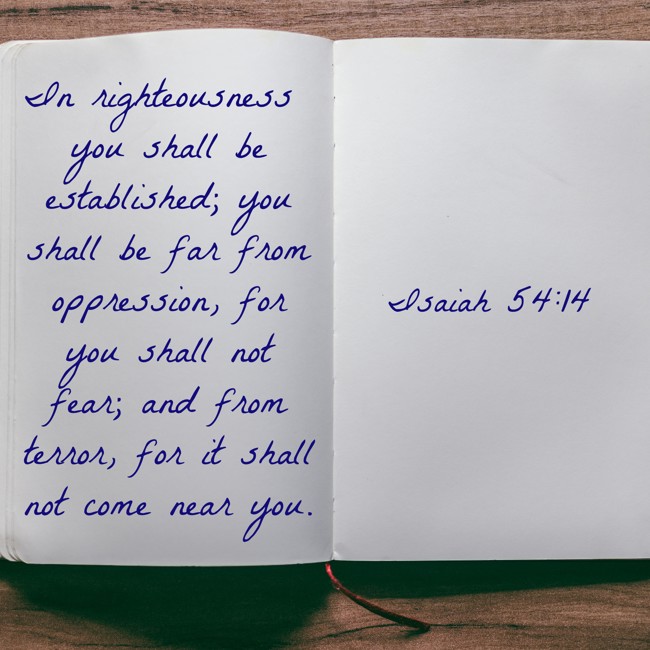 In righteousness
you shall be
established; you
shall be far from
oppression, for
you shall not
fear; and from
terror, for it shall
not come near you.
Isaiah 54:14